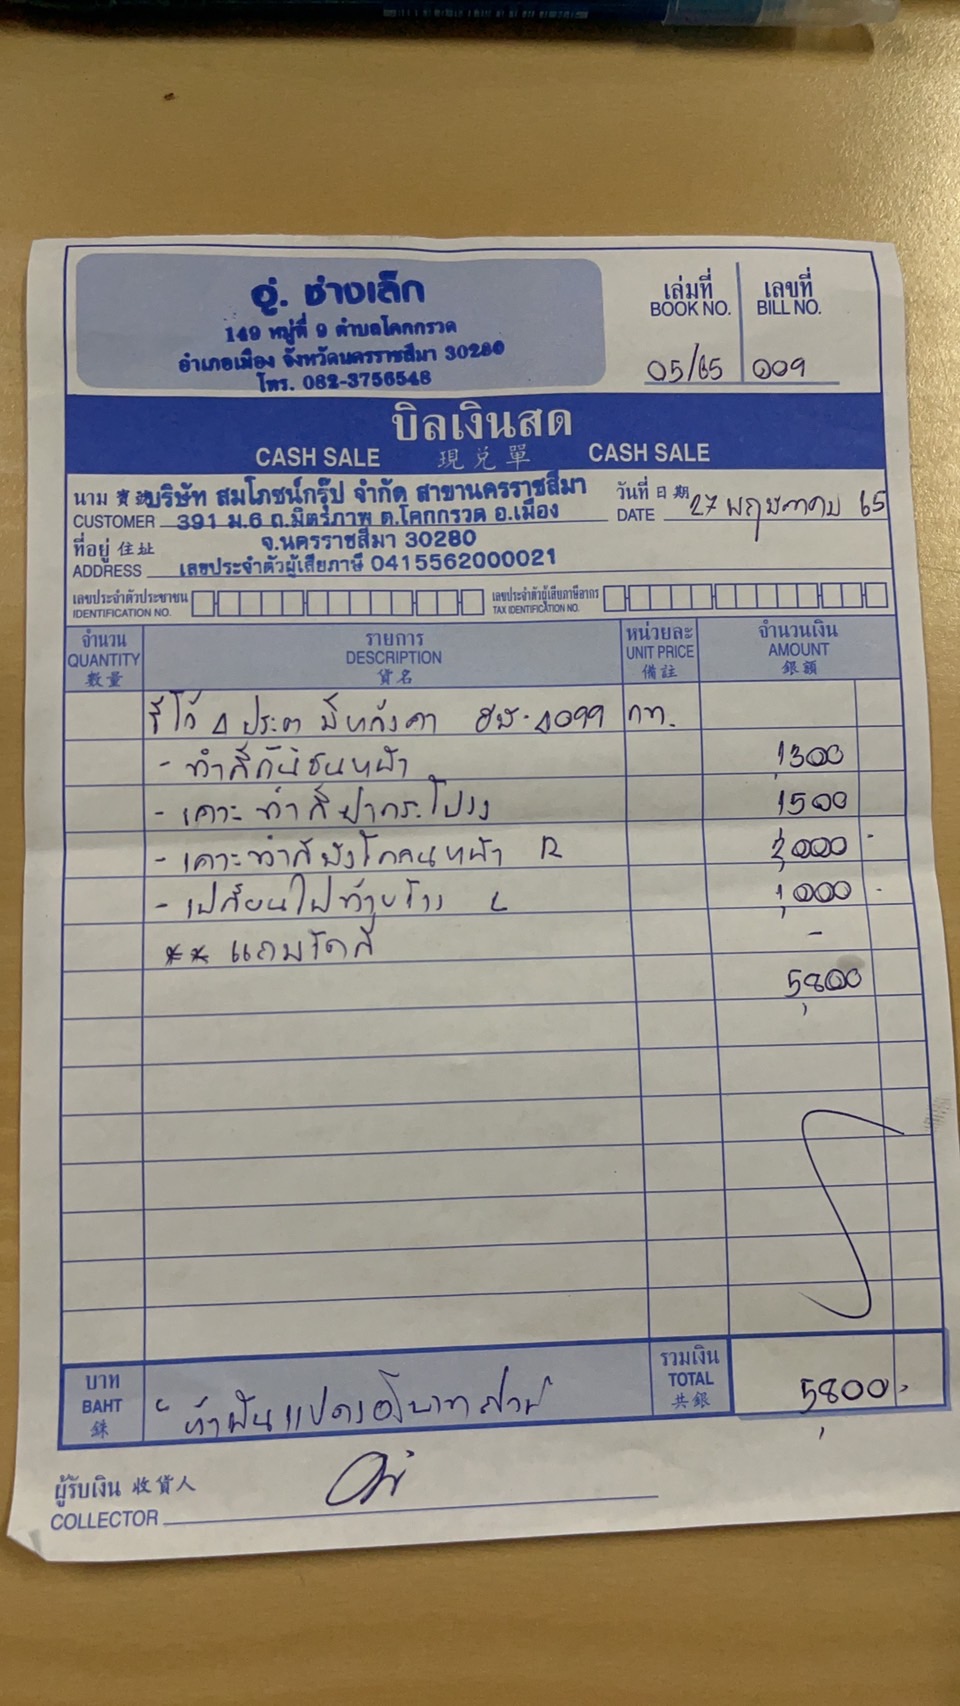 อู่. ช่างเล็ก
149 หมู่ที่ 9 ตำบลโคกกรวด
อำเภอเมือง จังหวัดนครราชสีมา 30280
โทร. 082-3756548
เล่มที่ เลขที่
BOOK NO. BILL NO.
05/65 009
บิลเงินสด
CASH SALE 現兑單 CASH SALE
นาม 寶號 บริษัท สมโภชน์กรุ๊ป จำกัด สาขานครราชสีมา วันที่ 日期
CUSTOMER 391 ม.6 ถ.มิตรภาพ ต.โคกกรวด อ.เมือง DATE 27 พฤษภาคม 65
ที่อยู่ 住址 จ.นครราชสีมา 30280
ADDRESS เลขประจำตัวผู้เสียภาษี 0415562000021
เลขประจำตัวประชาชน เลขประจำตัวผู้เสียภาษีอากร
IDENTIFICATION NO. TAX IDENTIFICATION NO.
จำนวน รายการ หน่วยละ จำนวนเงิน
QUANTITY DESCRIPTION UNIT PRICE AMOUNT
數量 貨名 備註 銀額
รีโว้ 4 ประตู มีหลังคา 4099 กท.
- ทำสีกันชนหน้า 1,300
- เคาะทำสีฝากระโปรง 1500
- เคาะทำสีบังโคลนหน้า R 2,000 -
- เปลี่ยนไฟท้าย L 1,000 -
** แถมขัดสี -
5,800
บาท รวมเงิน
BAHT "ห้าพันแปดร้อยบาทถ้วน" TOTAL 5,800.-
銖 共銀
ผู้รับเงิน 收貨人
COLLECTOR